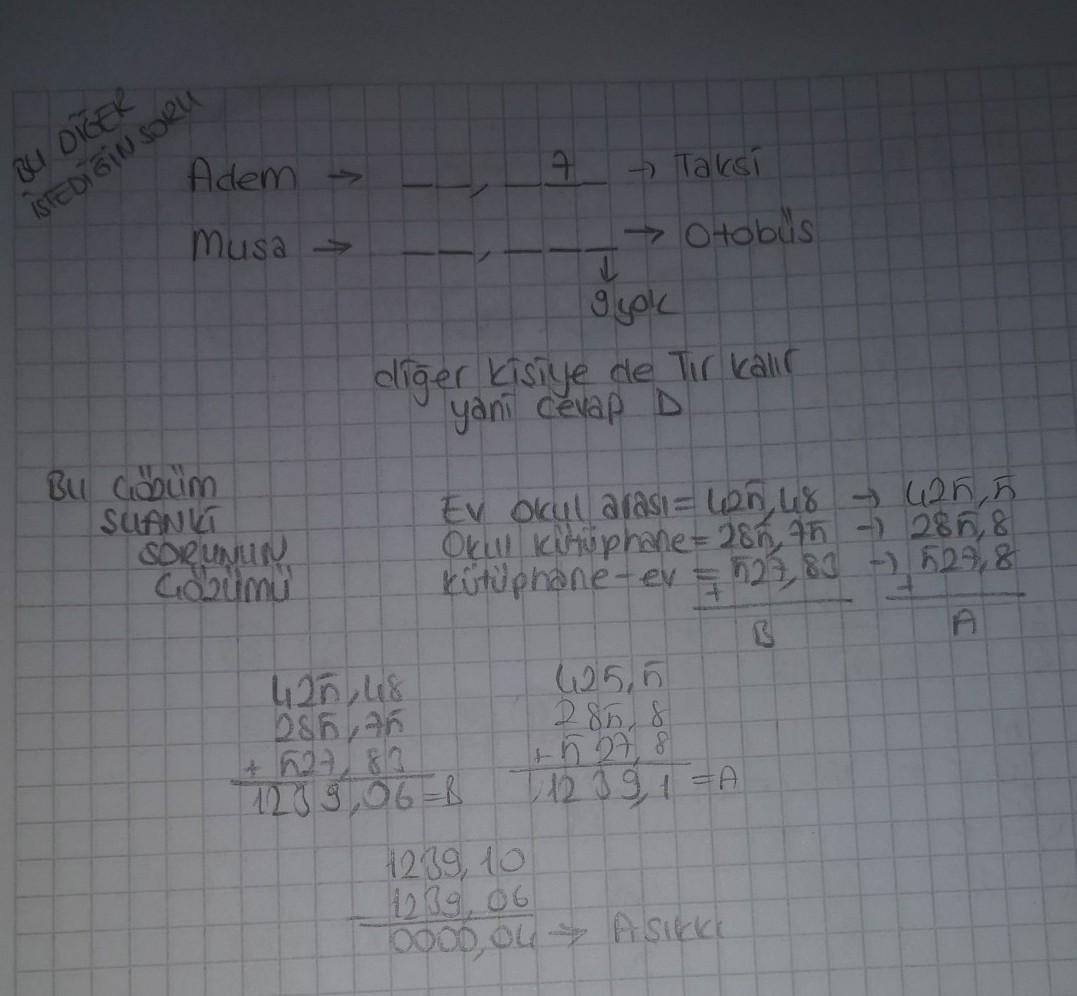 BU DİĞER
İSTEDİĞİN SORU
Adem → _ _, _ 7 _ → Taksi
Musa → _ _, _ _ _ → Otobüs
↓
9 yok
diğer kişiye de Tır kalır
yani cevap D
BU ÇÖZÜM
ŞUANKİ
SORUNUN
ÇÖZÜMÜ
Ev okul arası = 425,48 → 425,5
Okul kütüphane = 285,75 → 285,8
kütüphane - ev = 527,83 → 527,8
+ +
B A
425,48
285,75
+ 527,83
1239,06 = B
425,5
285,8
+ 527,8
1239,1 = A
1239,10
- 1239,06
0000,04 → A şıkkı